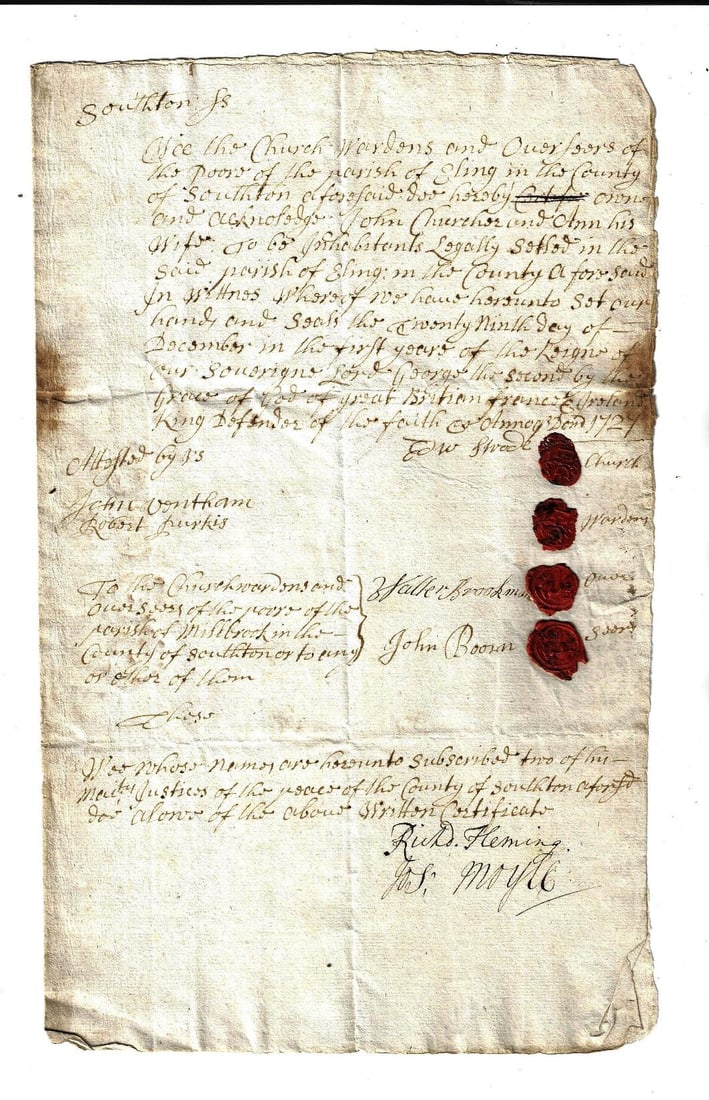 Southton ss
Wee the Church Wardens and Overseers of
the Poore of the parish of Eling in the County
of Southton aforesaid doe hereby owne
and acknoledge John Churcher and Ann his
Wife To be Inhabitants Legally Setled in the
Said parish of Eling in the County Aforesaid
In Wittnes Whereof we have hereunto Set our
hands and Seals the Twenty Ninth day of
December in the first yeare of the Reigne of
our Soverigne Lord George the Second by the
Grace of God of great Brittian france & Ireland
King Defender of the faith &c Annoq Dom 1727
Attested by Vs
Edw
Church
John Ventham
Robert Purkis
Wardens
To the Churchwardens and
Overseers of the poore of the
parish of Millbrook in the
County of Southton or to any
or Either of them
Walter Brookman
Over
John Boorn
Seers
These
Wee Whose Names are hereunto Subscribed two of his
Majties Justices of the peace of the County of Southton aforsd
doe Alowe of the above Written Certificate
Richd. Fleming.
Jos. Moyle